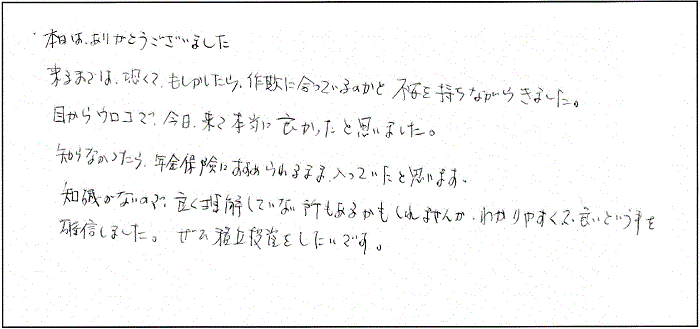 ・本日は、ありがとうございました
来るまでは、恐くて、もしかしたら、作欺に合っているのかと 不安を持ちながらきました。
目からウロコで、今日、来て本当に良かったと思いました。
知らなかったら、年金保険にすすめられるまま、入っていたと思います。
知識がないので、良く理解していない所もあるかもしれませんが、わかりやすくて、良いという事を
確信しました。 ぜひ積立投資をしたいです。